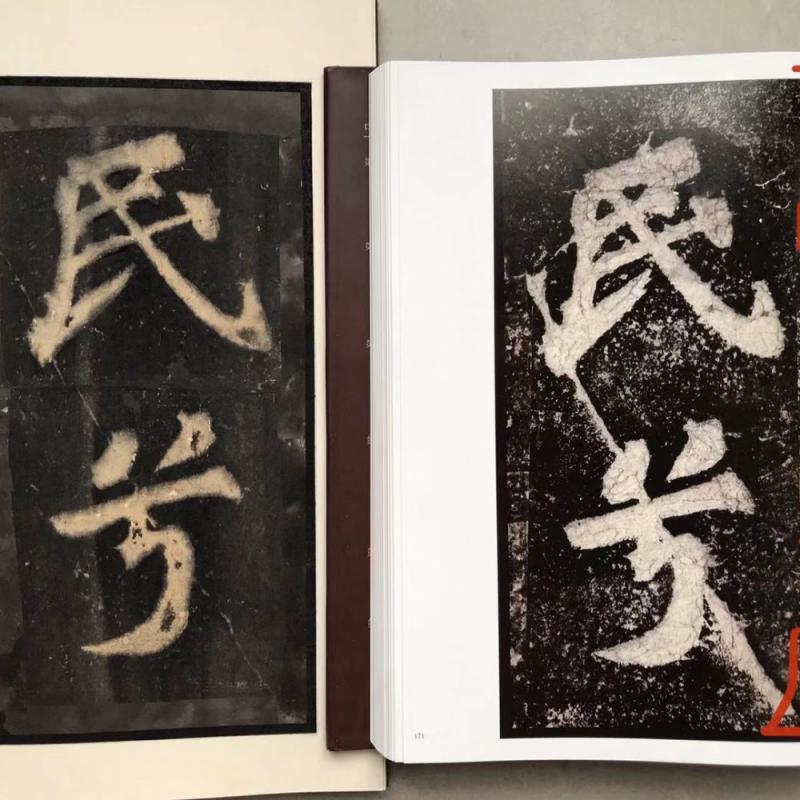 民兮
民兮
171